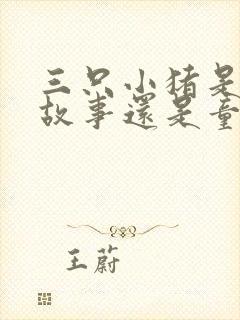 三只小猪是
故事還是童
王蔚